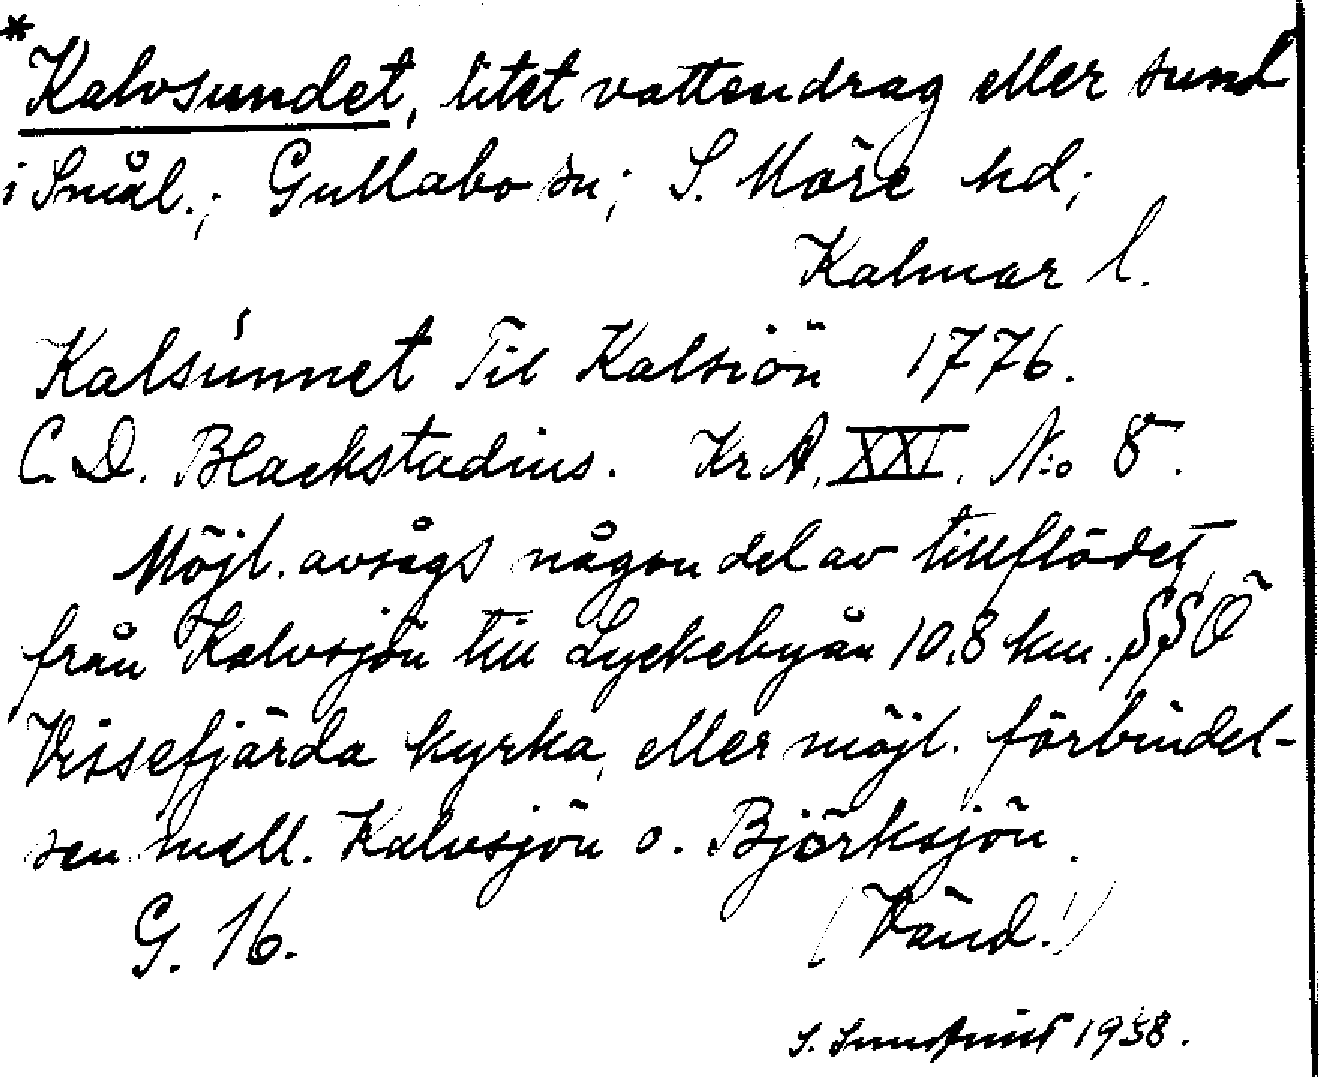 * Kalvsundet, litet vattendrag eller sund
i Smål.; Gullabo sn; S. Möre hd;
Kalmar l.
Kalsúnnet Til Kalsiön 1776.
C. D. Blackstadius. KrA, XXI. No 8.
Möjl. avsågs någon del av tillflödet
från Kalvsjön till Lyckebyån 10,8 km. SSÖ
Vissefjärda kyrka, eller möjl. förbindel-
sen mell. Kalvsjön o. Björksjön.
G. 16.
(Vänd!)
S. 1938.